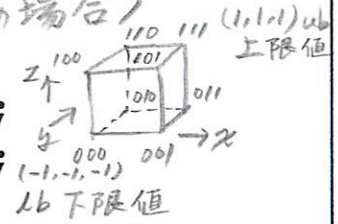 の場合)
110 111 (1,1,1) ub
上限値
100 101
z
010 011
y → x
000 001
(-1,-1,-1)
lb 下限値